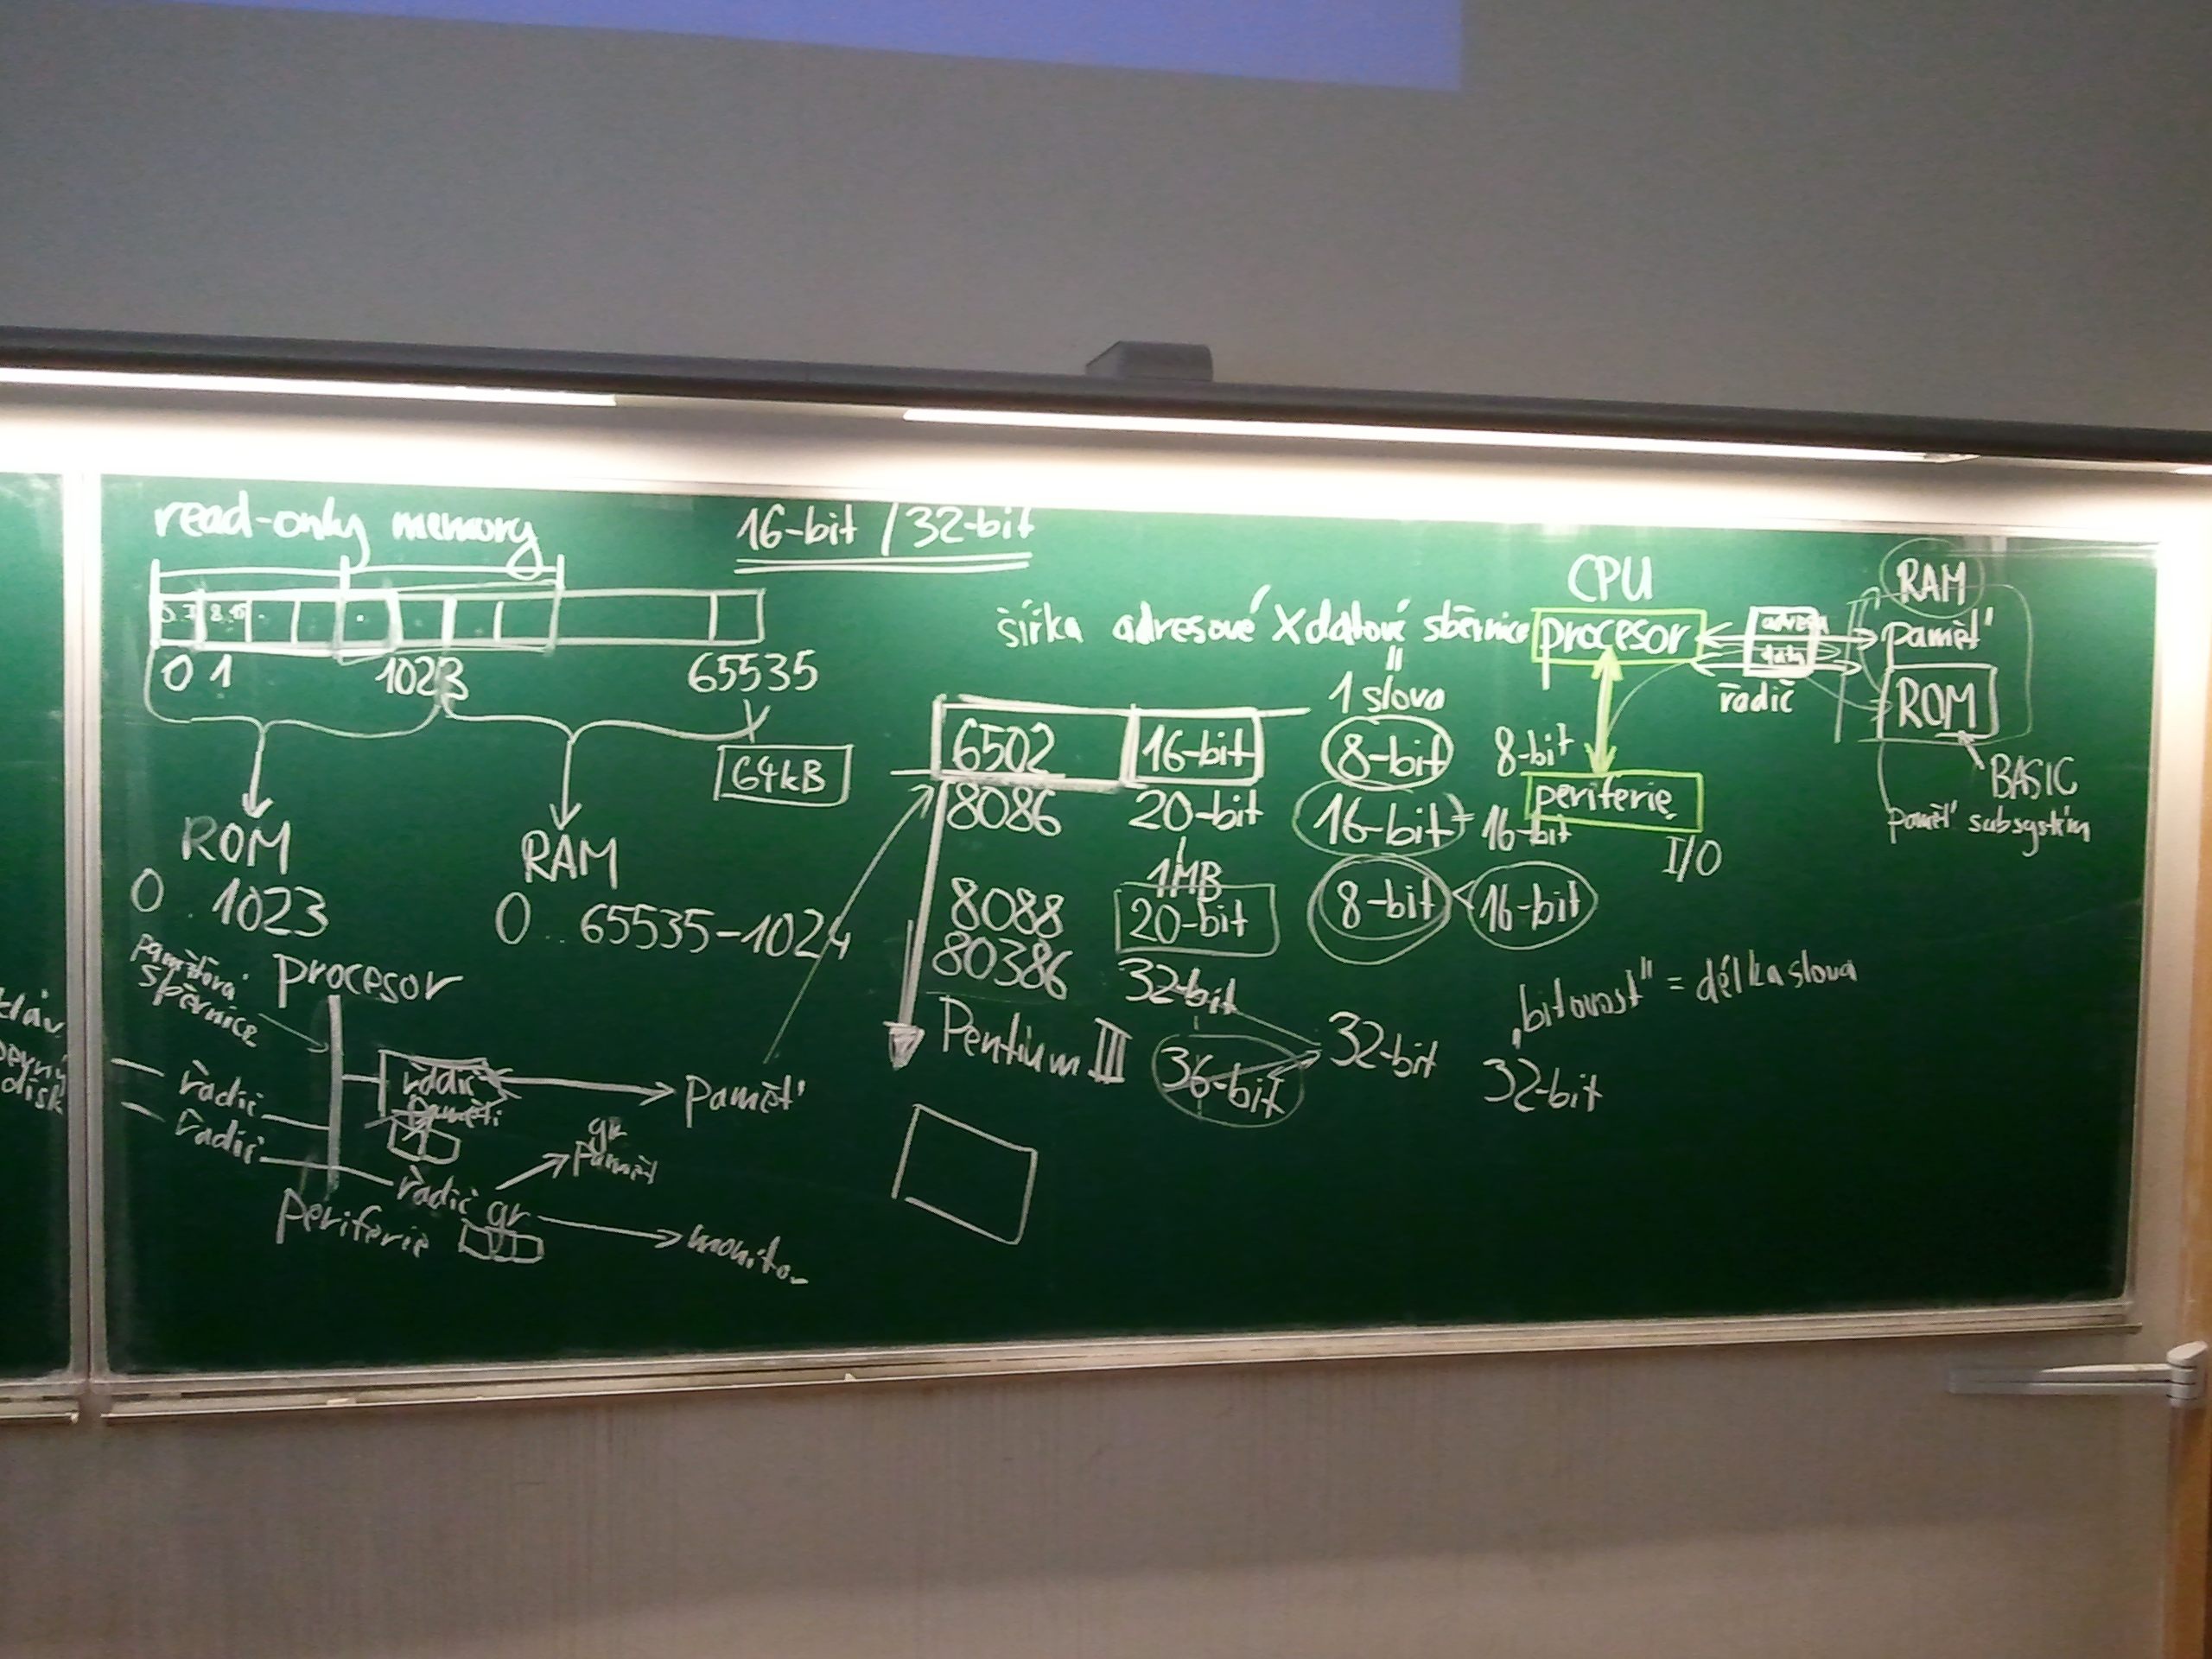 read-only memory
0 1 1023 65535
64kB
ROM
0 . 1023
RAM
0 .. 65535-1024
paměťová
sběrnice
procesor
řadič
řadič
řadič
paměti
paměť
řadič gr
gr
paměť
periferie
disk
16-bit / 32-bit
šířka adresové X datové sběrnice
1 slova
6502 16-bit 8-bit 8-bit
8086 20-bit 16-bit = 16-bit
1MB
8088 20-bit 8-bit < 16-bit
80386 32-bit
Pentium III 36-bit 32-bit 32-bit
„bitovost" = délka slova
CPU
procesor
periferie
I/O
adresa
data
řadič
RAM
paměť
ROM
BASIC
paměť subsystém